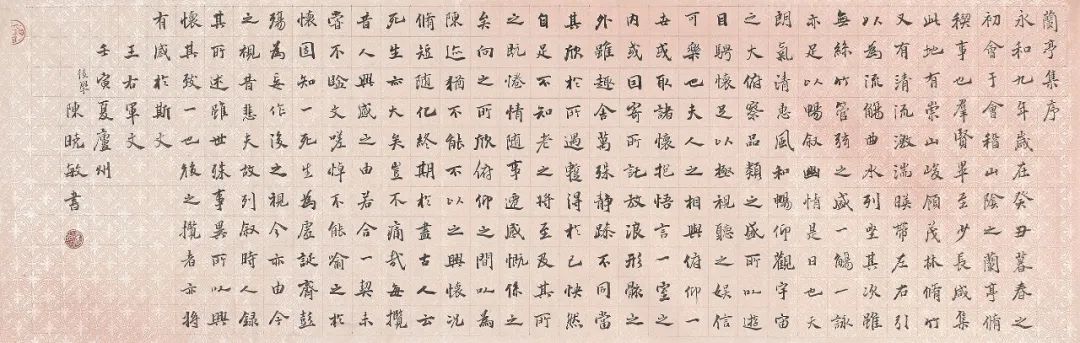 蘭亭集序
永和九年歲在癸丑暮春之
初會于會稽山陰之蘭亭脩
禊事也羣賢畢至少長咸集
此地有崇山峻領茂林脩竹
又有清流激湍暎帶左右引
以為流觴曲水列坐其次雖
無絲竹管弦之盛一觴一詠
亦足以暢叙幽情是日也天
朗氣清惠風和暢仰觀宇宙
之大俯察品類之盛所以遊
目騁懷足以極視聽之娛信
可樂也夫人之相與俯仰一
世或取諸懷抱悟言一室之
內或因寄所託放浪形骸之
外雖趣舍萬殊靜躁不同當
其欣於所遇暫得於己快然
自足不知老之將至及其所
之既惓情隨事遷感慨係之
矣向之所欣俯仰之間以為
陳迹猶不能不以之興懷況
脩短隨化終期於盡古人云
死生亦大矣豈不痛哉每攬
昔人興感之由若合一契未
嘗不臨文嗟悼不能喻之於
懷固知一死生為虛誕齊彭
殤為妄作後之視今亦由今
之視昔悲夫故列叙時人錄
其所述雖世殊事異所以興
懷其致一也後之攬者亦將
有感於斯文
王右軍文
壬寅夏廬州
後學
陳曉敏書